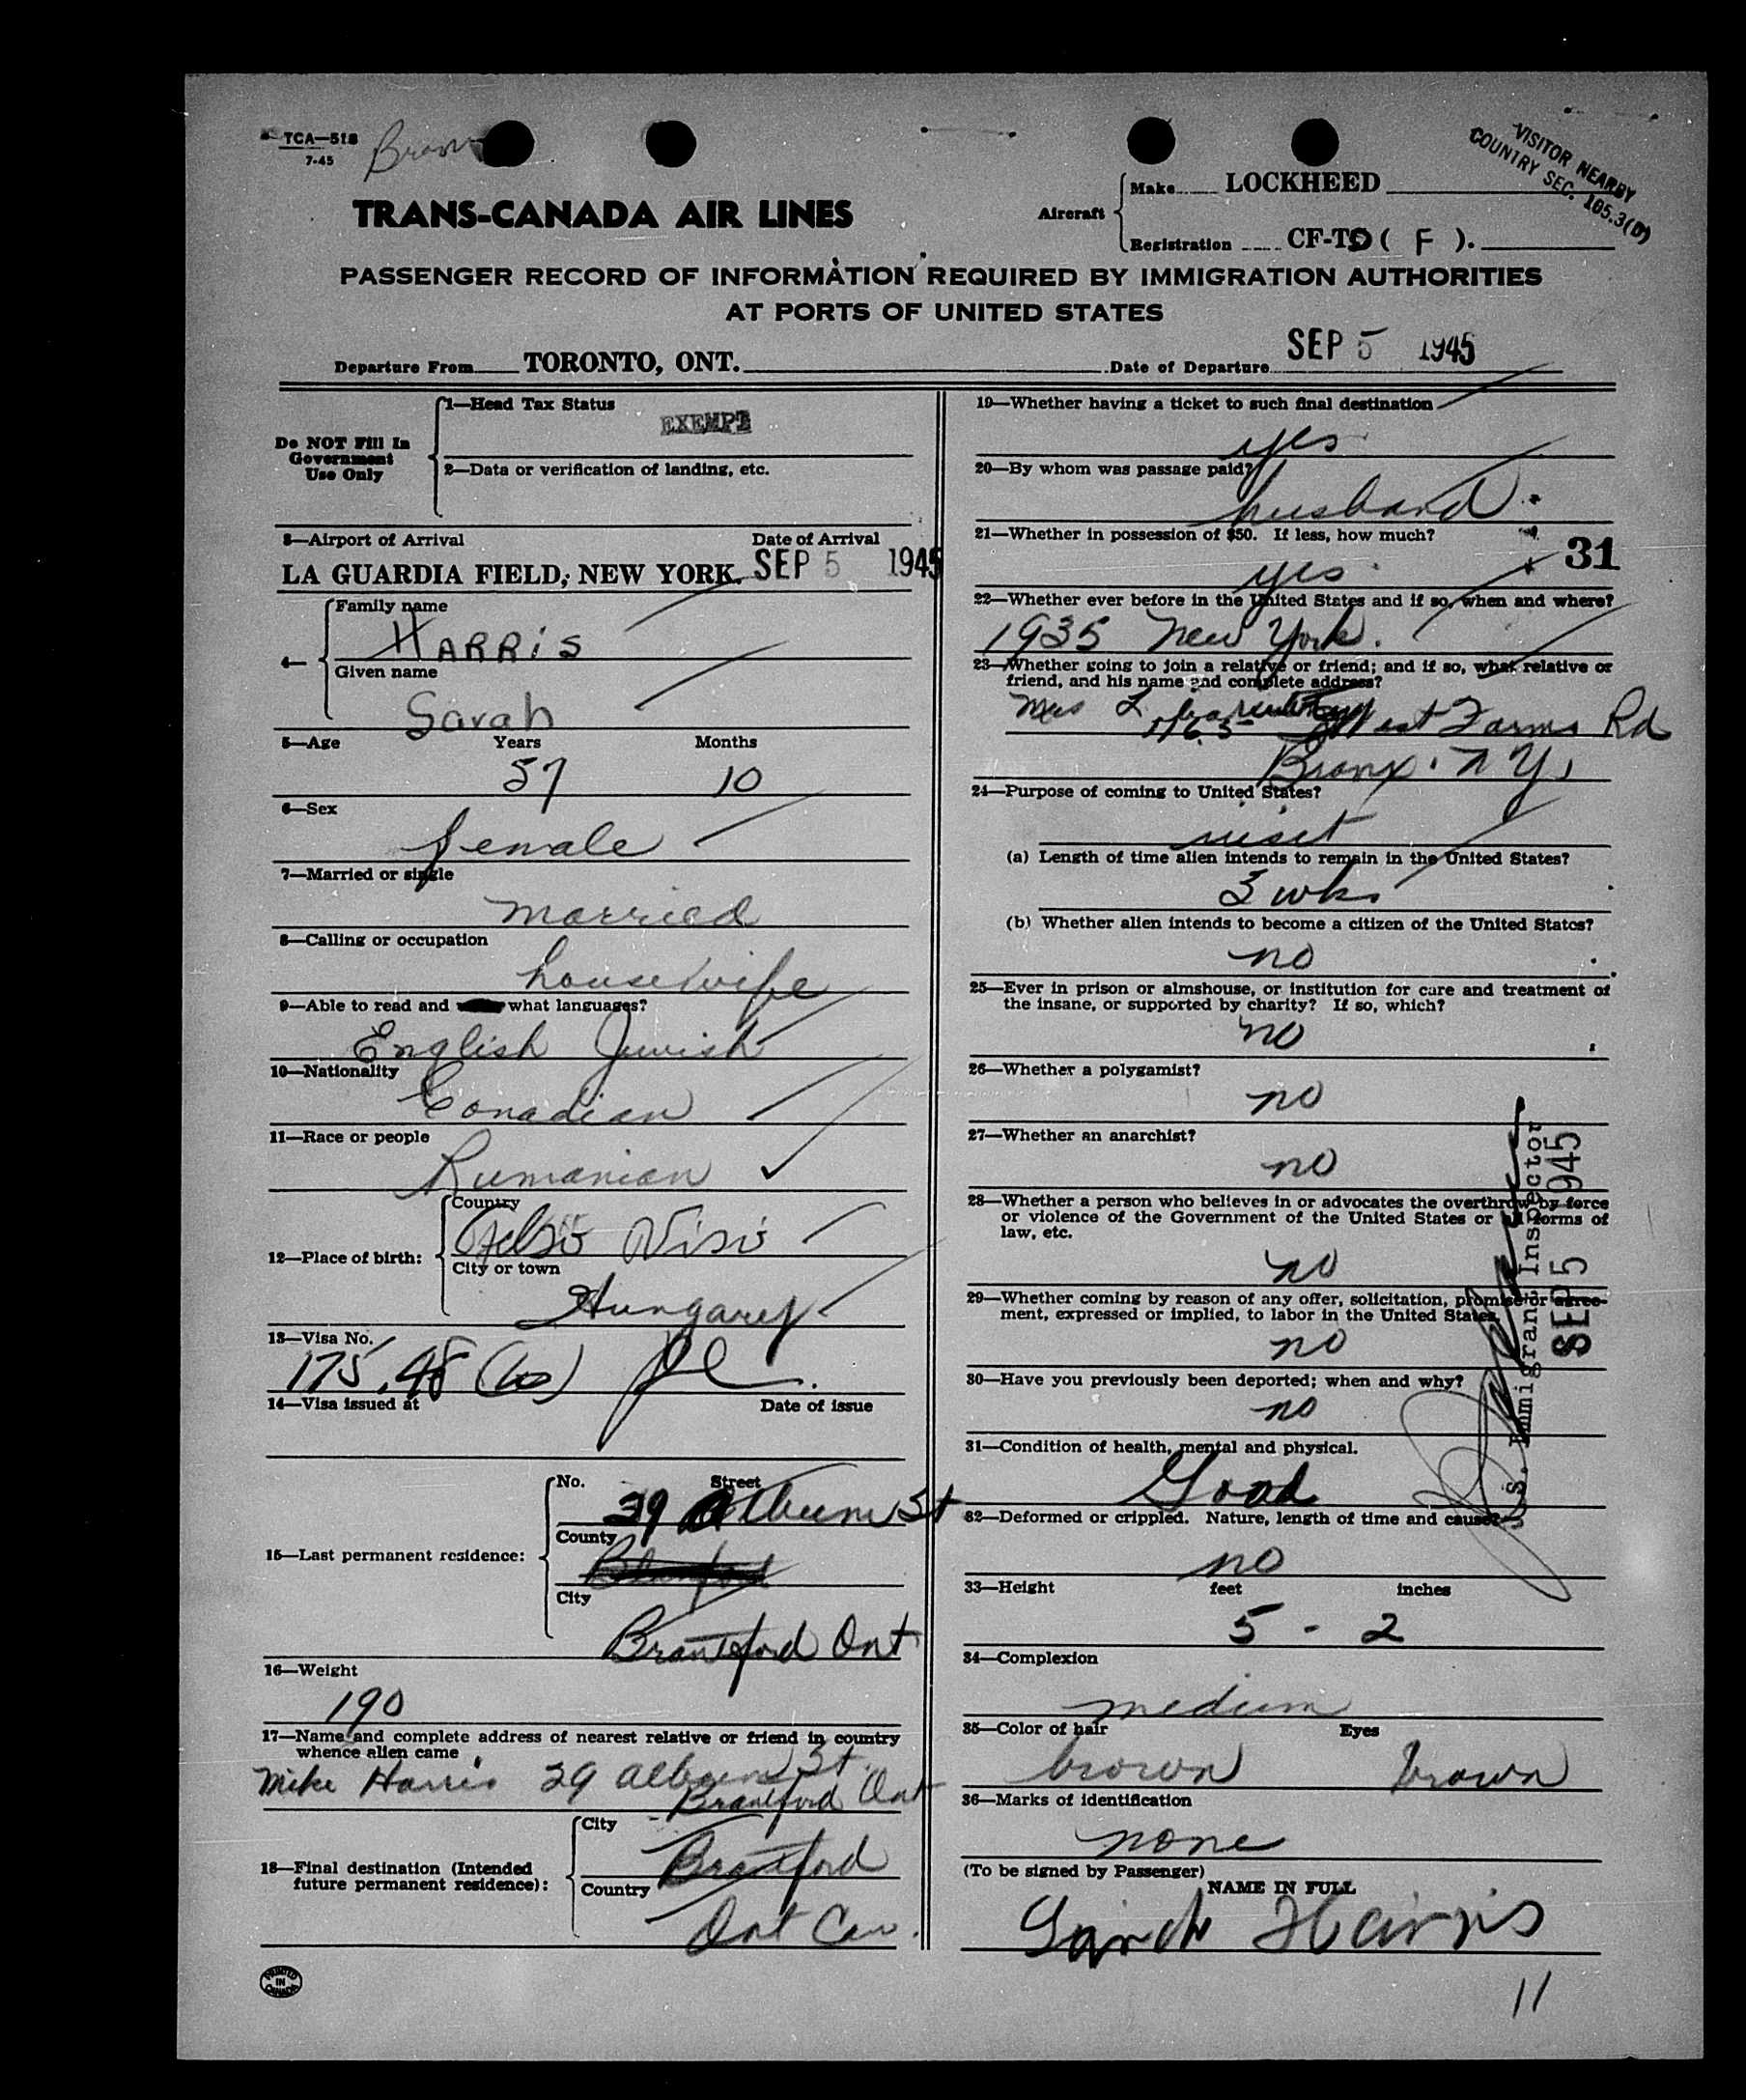 TCA—518
7-45
VISITOR NEARBY
COUNTRY SEC. 105.3(D)
TRANS-CANADA AIR LINES
Aircraft
Make LOCKHEED
Registration CF-TD ( F ).
PASSENGER RECORD OF INFORMATION REQUIRED BY IMMIGRATION AUTHORITIES
AT PORTS OF UNITED STATES
Departure From TORONTO, ONT. Date of Departure SEP 5 1945
Do NOT Fill In
Government
Use Only
1—Head Tax Status
EXEMPT
2—Data or verification of landing, etc.
3—Airport of Arrival Date of Arrival
LA GUARDIA FIELD, NEW YORK. SEP 5 1945
4—
Family name
HARRiS
Given name
Sarah
5—Age Years Months
57 10
6—Sex
female
7—Married or single
married
8—Calling or occupation
housewife
9—Able to read and what languages?
English Jewish
10—Nationality
Canadian
11—Race or people
Rumanian
12—Place of birth:
Country
Felso Viso
City or town
Hungary
13—Visa No.
175.48
14—Visa issued at Date of issue
15—Last permanent residence:
No. Street
39 St
County
City
Brantford Ont
16—Weight
190
17—Name and complete address of nearest relative or friend in country
whence alien came
Mike Harris 39 St.
Brantford Ont
18—Final destination (Intended
future permanent residence):
City
Brantford
Country
Ont Can.
PRINTED IN CANADA
19—Whether having a ticket to such final destination
yes
20—By whom was passage paid?
husband
21—Whether in possession of $50. If less, how much?
yes
31
22—Whether ever before in the United States and if so, when and where?
1935 New York.
23—Whether going to join a relative or friend; and if so, what relative or
friend, and his name and complete address?
Mrs L. West Farms Rd
Bronx. N Y.
24—Purpose of coming to United States?
visit
(a) Length of time alien intends to remain in the United States?
3 wks
(b) Whether alien intends to become a citizen of the United States?
no
25—Ever in prison or almshouse, or institution for care and treatment of
the insane, or supported by charity? If so, which?
no
26—Whether a polygamist?
no
27—Whether an anarchist?
no
28—Whether a person who believes in or advocates the overthrow by force
or violence of the Government of the United States or all forms of
law, etc.
no
29—Whether coming by reason of any offer, solicitation, promise or agree-
ment, expressed or implied, to labor in the United States.
no
30—Have you previously been deported; when and why?
no
U.S. Immigrant Inspector
SEP 5 1945
31—Condition of health, mental and physical.
Good
32—Deformed or crippled. Nature, length of time and cause?
no
33—Height feet inches
5 - 2
34—Complexion
medium
35—Color of hair Eyes
brown brown
36—Marks of identification
none
(To be signed by Passenger)
NAME IN FULL
Sarah Harris
11